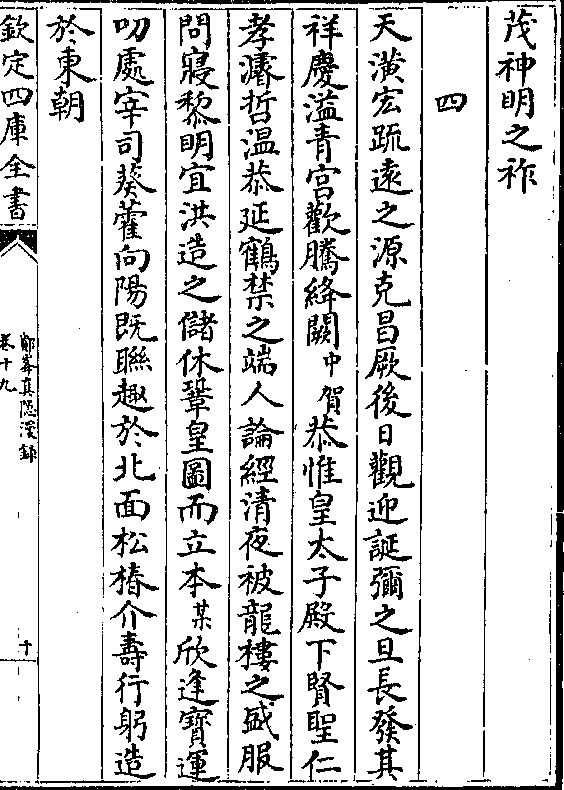 茂神明之祚
四
天潢宏䟽逺之源克昌厥後日觀迎誕彌之旦長發其
祥慶溢青宮歡騰絳闕中賀恭惟皇太子殿下賢聖仁
孝濬哲温恭延鶴禁之端人論經清夜被龍樓之盛服
問寢黎明宜洪造之儲休鞏皇圖而立本某欣逢寳運
叨處宰司葵藿向陽既聯趣於北面松椿介壽行躬造
於東朝
欽定四庫全書
鄮峯真隠漫録
卷十九
十